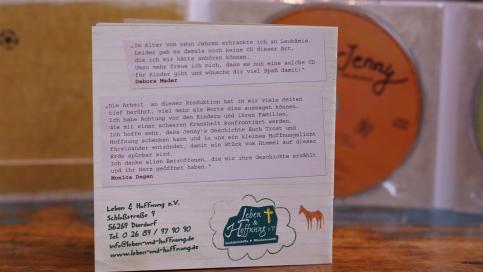 „Im Alter von neun Jahren erkrankte ich an Leukämie.
Leider gab es damals noch keine CD dieser Art,
die ich mir hätte anhören können.
Umso mehr freue ich mich, dass es nun eine solche CD
für Kinder gibt und wünsche dir viel Spaß damit!"
Debora Mader
„Die Arbeit an dieser Produktion hat in mir viele Seiten
tief berührt, viel mehr als Worte dies aussagen können.
Ich habe Achtung vor den Kindern und ihren Familien,
die mit einer schweren Krankheit konfrontiert werden.
Ich hoffe sehr, dass Jenny's Geschichte Euch Trost und
Hoffnung schenken kann und in uns ein kleines Hoffnungslicht
füreinander entzündet, damit ein Stück vom Himmel auf dieser
Erde spürbar wird.
Ich danke allen Betroffenen, die mir ihre Geschichte erzählt
und ihr Herz geöffnet haben."
Monica Degen
Leben & Hoffnung e.V.
Schloßstraße 9
56269 Dierdorf
Tel. 0 26 89 / 97 90 90
info@leben-und-hoffnung.de
www.leben-und-hoffnung.de
Leben
&
Hoffnung e.V.
Jenny